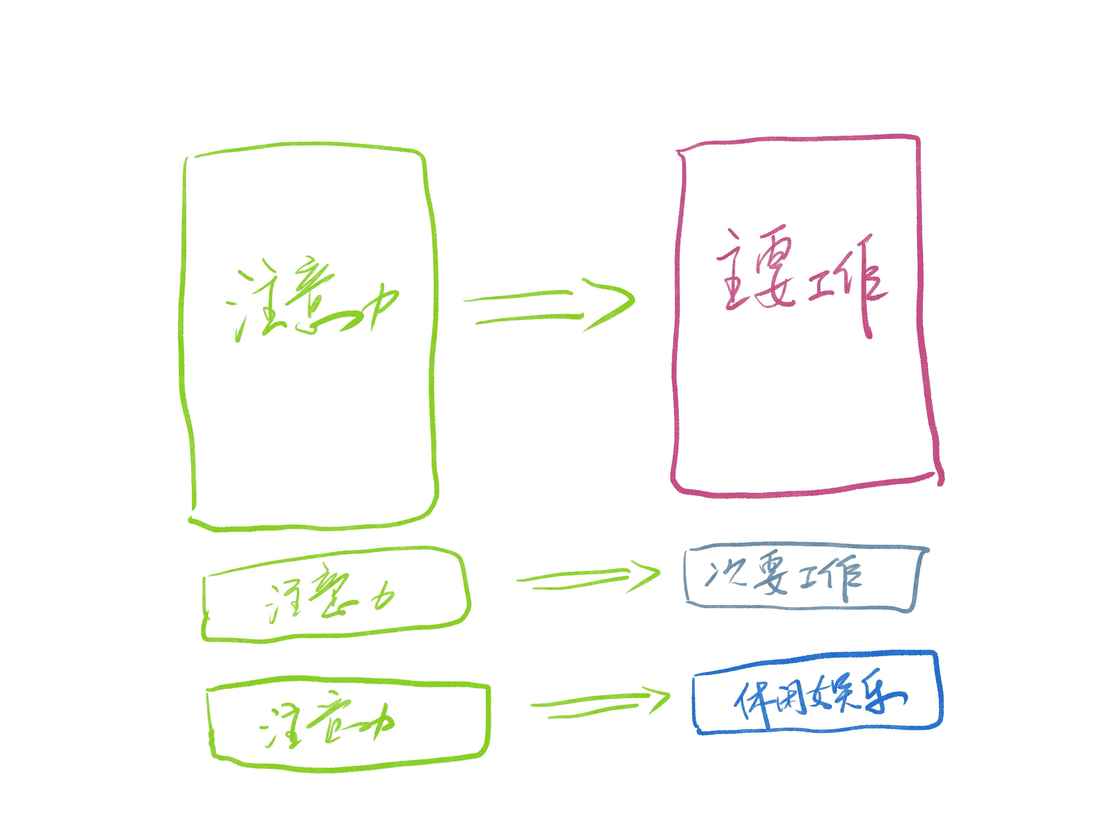 注意力
主要工作
注意力
次要工作
注意力
休闲娱乐